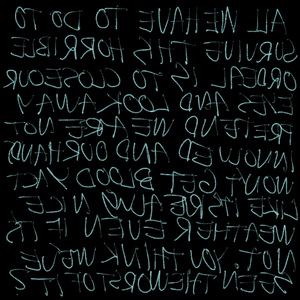 ALL WE HAVE TO DO TO
SURVIVE THIS HORRIBLE
ORDEAL IS TO CLOSE OUR
EYES AND LOOK AWAY
PRETEND WE ARE NOT
INVOLVED AND OUR HAND
WON'T GET BLOODY ACT
LIKE NICE
WEATHER EVEN IF IT'S
NOT. YOU THINK WE'VE
SEEN THE WORST OF IT